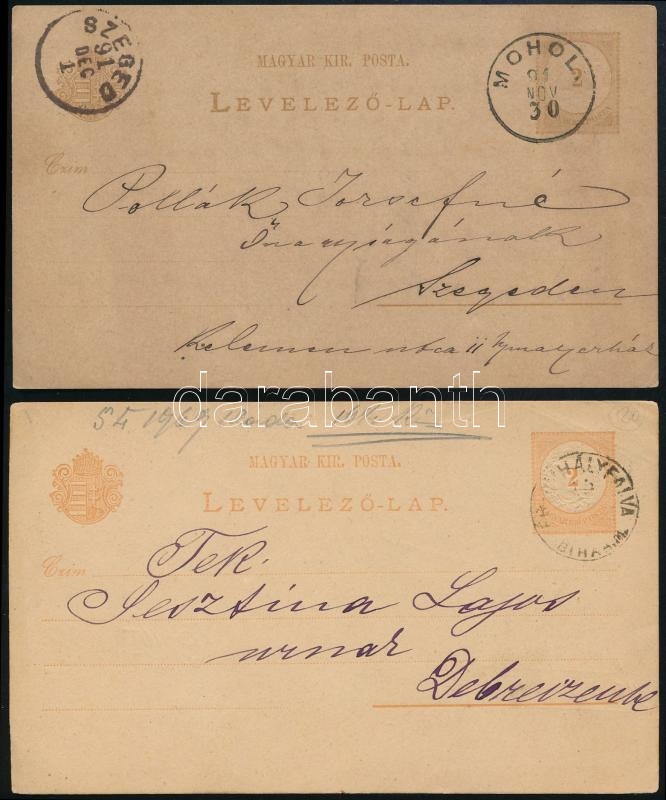 SZEGED
91
DEC
1
MAGYAR KIR. POSTA.
LEVELEZŐ-LAP.
MOHOL
91
NOV
30
2
Czím
Pollák Jorsefné
Őnagyságának
Szegeden
Kelemen utca 11
darabanth
MAGYAR KIR. POSTA.
LEVELEZŐ-LAP.
2
MIHÁLYFALVA
BIHAR
Czím
Tek.
Jesztina Lajos
urnak
Debreczenbe